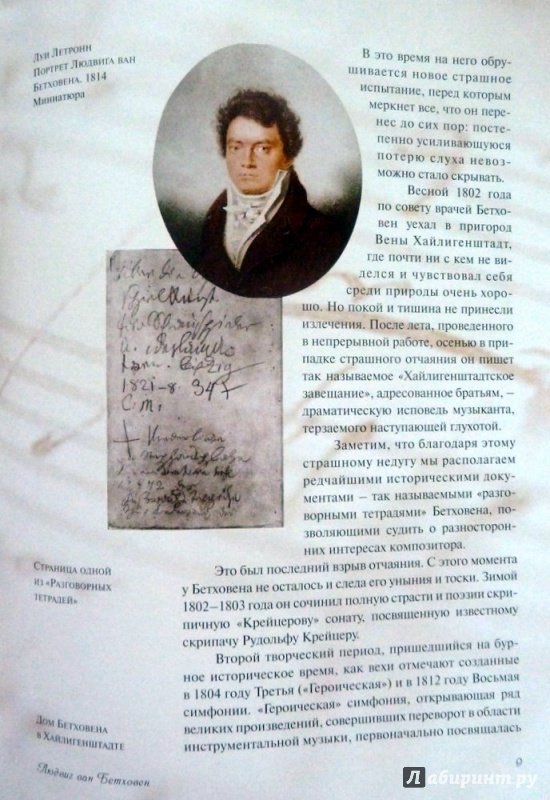 Луи Летронн
Портрет Людвига ван
Бетховена. 1814
Миниатюра
В это время на него обру-
шивается новое страшное
испытание, перед которым
меркнет все, что он пере-
нес до сих пор: посте-
пенно усиливающуюся
потерю слуха невоз-
можно стало скрывать.
Весной 1802 года
по совету врачей Бетхо-
вен уехал в пригород
Вены Хайлигенштадт,
где почти ни с кем не ви-
делся и чувствовал себя
среди природы очень хоро-
шо. Но покой и тишина не принесли
излечения. После лета, проведенного
в непрерывной работе, осенью в при-
падке страшного отчаяния он пишет
так называемое «Хайлигенштадтское
завещание», адресованное братьям, –
драматическую исповедь музыканта,
терзаемого наступающей глухотой.
Заметим, что благодаря этому
страшному недугу мы располагаем
редчайшими историческими доку-
ментами – так называемыми «разго-
ворными тетрадями» Бетховена, по-
зволяющими судить о разносторон-
них интересах композитора.
Это был последний взрыв отчаяния. С этого момента
у Бетховена не осталось и следа его уныния и тоски. Зимой
1802–1803 года он сочинил полную страсти и поэзии скри-
пичную «Крейцерову» сонату, посвященную известному
скрипачу Рудольфу Крейцеру.
Второй творческий период, пришедшийся на бур-
ное историческое время, как вехи отмечают созданные
в 1804 году Третья («Героическая») и в 1812 году Восьмая
симфонии. «Героическая» симфония, открывающая ряд
великих произведений, совершивших переворот в области
инструментальной музыки, первоначально посвящалась
1821-8. 34
C. M.
Страница одной
из «Разговорных
тетрадей»
Дом Бетховена
в Хайлигенштадте
Людвиг ван Бетховен
9
Лабиринт.ру